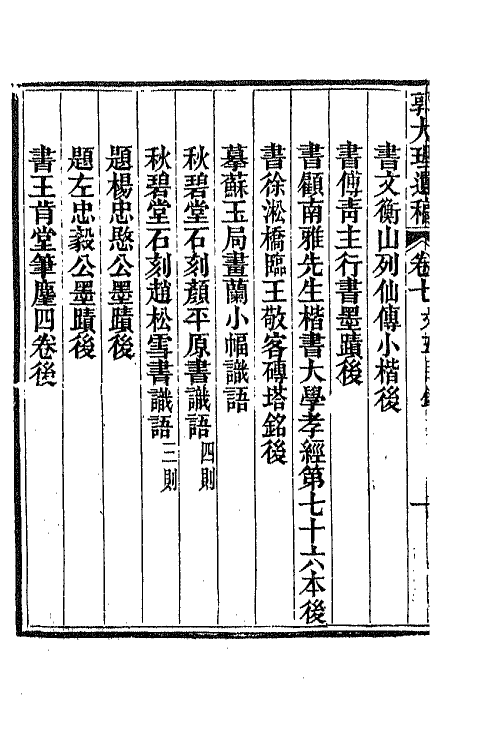 郭大理遺稿 卷七 文五目錄 一
書文衡山列仙傳小楷後
書傅青主行書墨蹟後
書顧南雅先生楷書大學孝經第七十六本後
書徐淞橋臨王敬客磚塔銘後
摹蘇玉局畫蘭小幅識語
秋碧堂石刻顏平原書識語四則
秋碧堂石刻趙松雪書識語二則
題楊忠愍公墨蹟後
題左忠毅公墨蹟後
書王肯堂筆麈四卷後